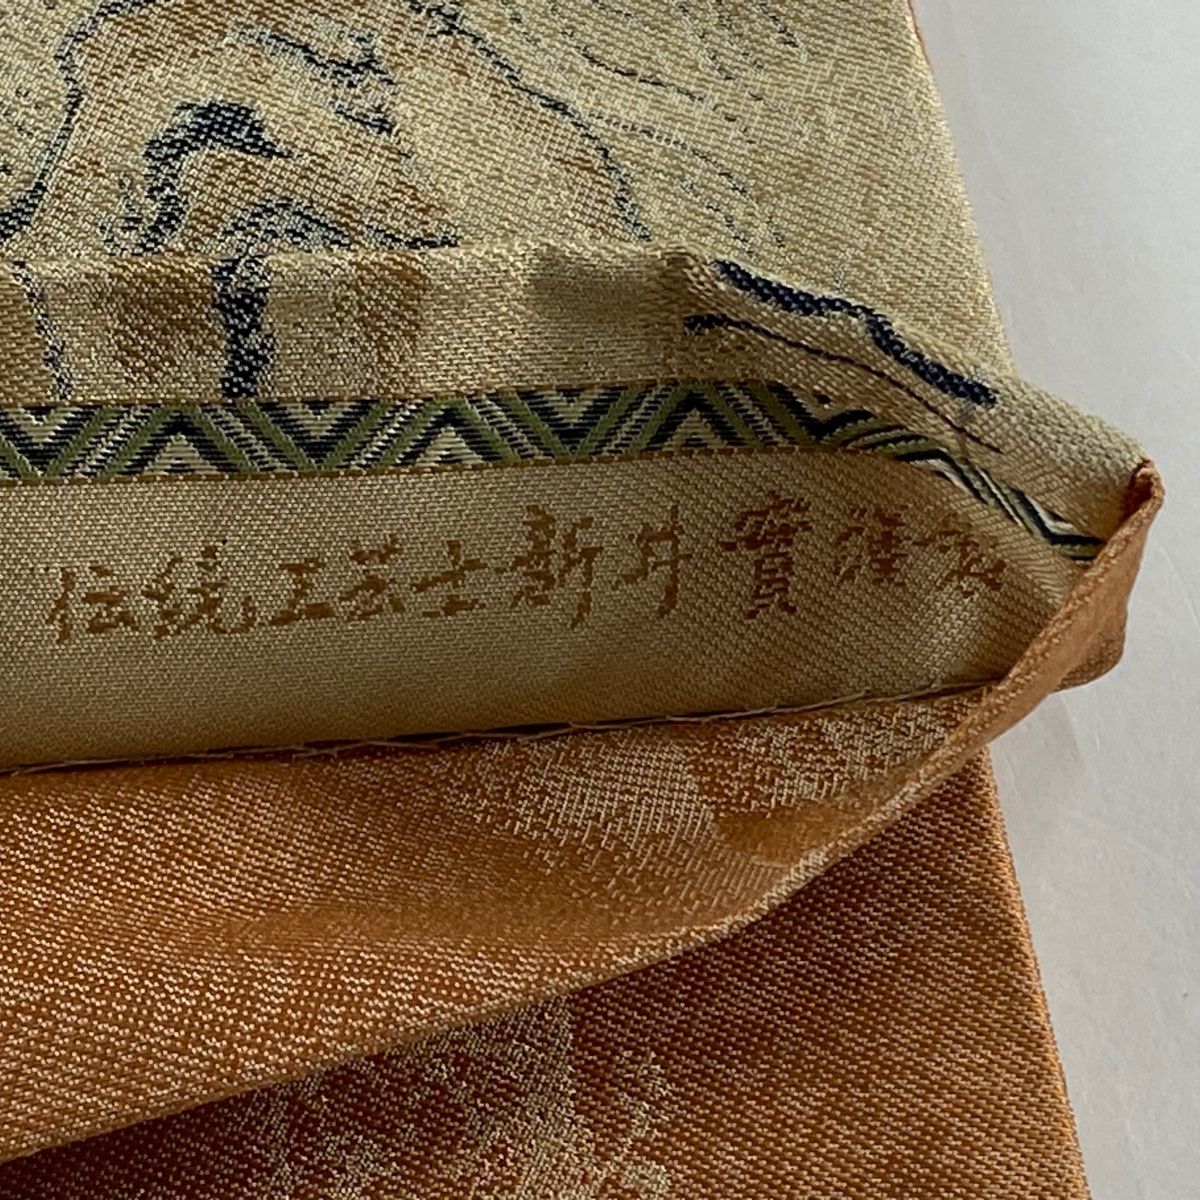 伝統工芸士新井實謹製